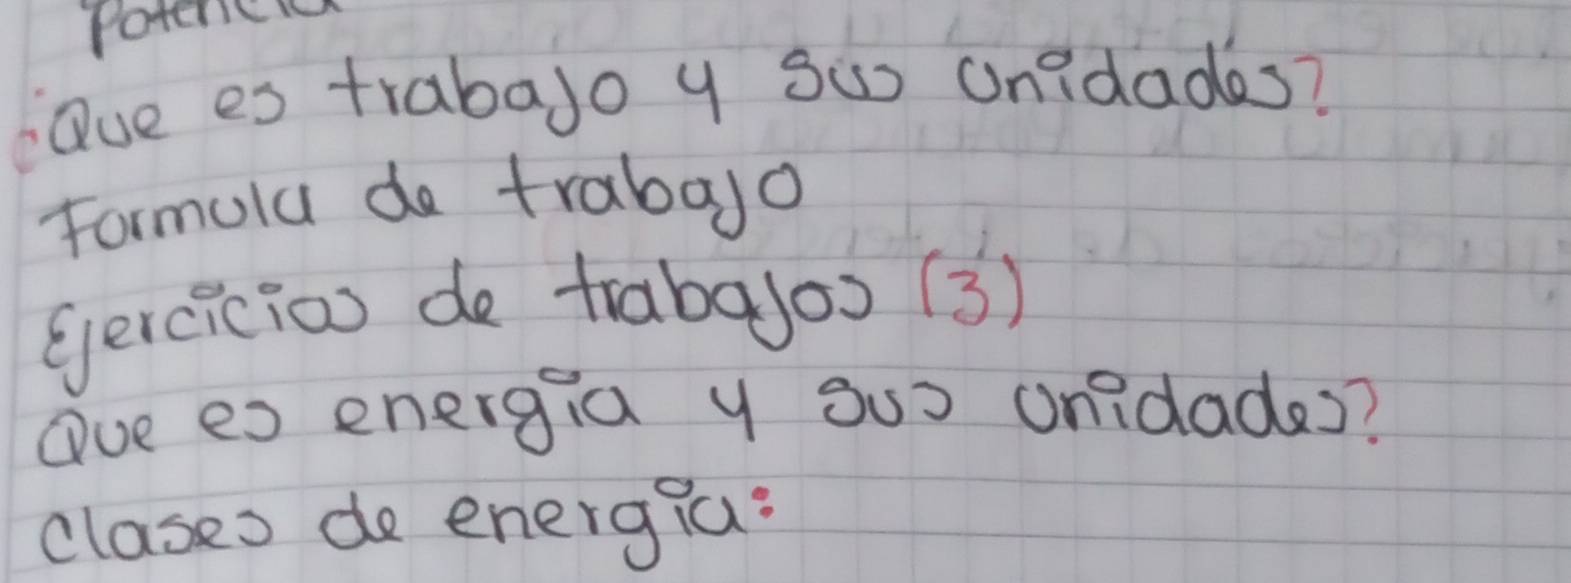 Potencia
¿Que es trabajo y sus unidades?
Formula de trabajo
Ejercicios de trabajos (3)
Que es energia y sus unidades?
clases de energia: